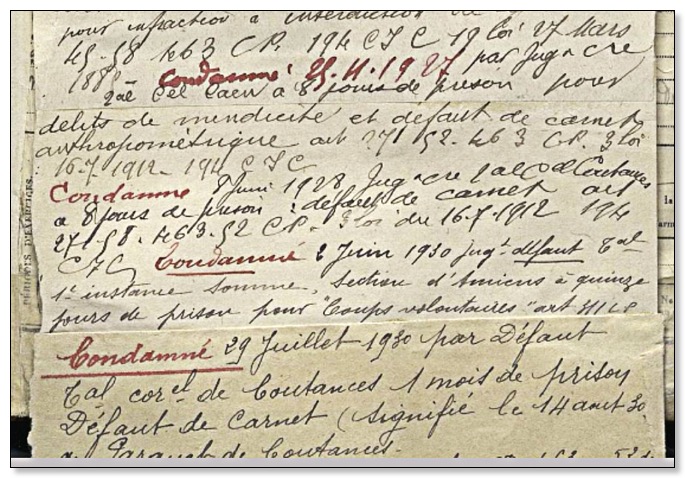 pour infraction à interdiction de
45-58 463 C.P. 194 C I C 19 loi 27 Mars
1885 Condamné 25.11.1927 par Jugt Cre
2me Cel Caen à 8 jours de prison pour
délits de mendicité et défaut de carnet
anthropométrique art 271 52-463 C.P. 3 loi
16-7-1912-194 C I C
Condamné 8 Juin 1928 Jugt Cre Coutances
à 8 jours de prison : défaut de carnet art
27-58-463-52 C.P. 3 loi du 16.7.1912 194
C I C Condamné 2 Juin 1930 Jugt défaut Tal
1e instance Somme, section d'Amiens à quinze
jours de prison pour "Coups volontaires" art 311 CP
Condamné 29 Juillet 1930 par Défaut
Tal corel de Coutances 1 mois de prison
Défaut de Carnet (signifié le 14 aout 30
Parquet de Coutances-
PÉRIODES D'EXERCICES.